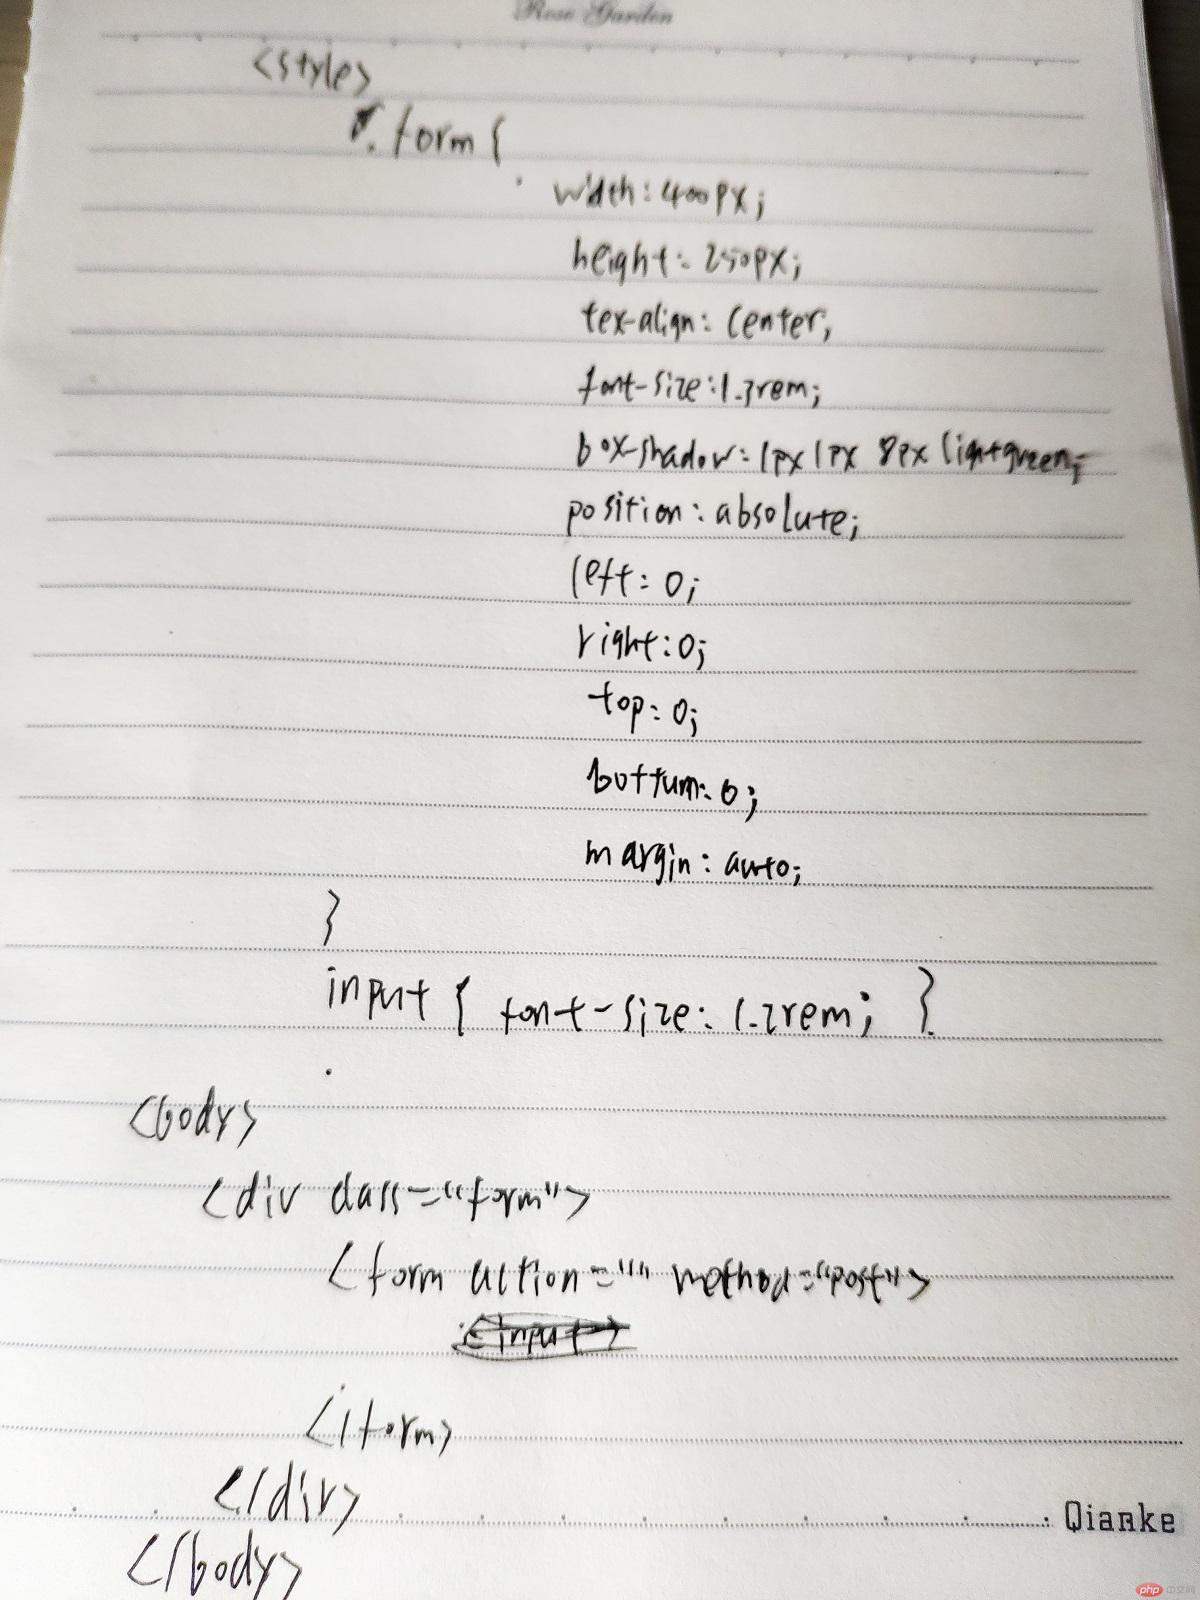 Rose Garden
<style>
.form {
width: 400px;
height: 250px;
tex-align: center;
font-size: 1.3rem;
box-shadow: 1px 1px 8px lightgreen;
position: absolute;
left: 0;
right: 0;
top: 0;
bottum: 0;
margin: auto;
}
input { font-size: 1.2rem; }
<body>
<div class="form">
<form action="" method="post">
<input>
</form>
</div>
Qianke
</body>
php 中文网